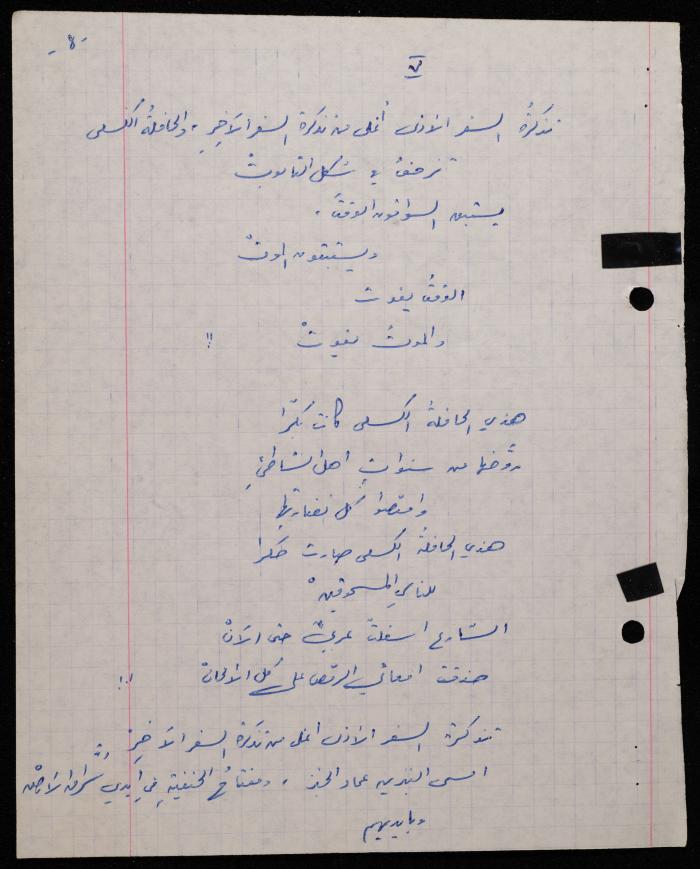 -٨-
٧
تذكرةُ السفر الأولى أغلى من تذكرة السفر الآخِرِ، والحافلةُ الكسلى
تزحفُ في شكل التابوتْ
يستبق السوّاقون الوقتَ،
ويستبقون الموتْ
الوقتُ يفوت
والموتُ يفوتْ !!
هذي الحافلةُ الكسلى كانت بكرًا
روّضها من سنواتٍ اهلُ الشاطئِ
وامتصوا كل نضارتها
هذي الحافلة الكسلى صارت حكرا
للناسِ المسحوقينْ
الشارع اسفلتٌ عربيٌ حتى الآنْ
حذقت امعائي الرقص على كل الألحانْ !!!
تذكرة السفر الأولى أغلى من تذكرة السفر الآخِرْ
امسى البنزين عماد الخبز، ومفتاحُ الحنفيّةِ في ايدي شرفاء الأرضْ
وبايديهم